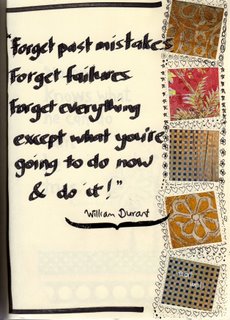 "Forget past mistakes
Forget failures
Forget everything
except what you're
going to do now
& do it!"
William Durant